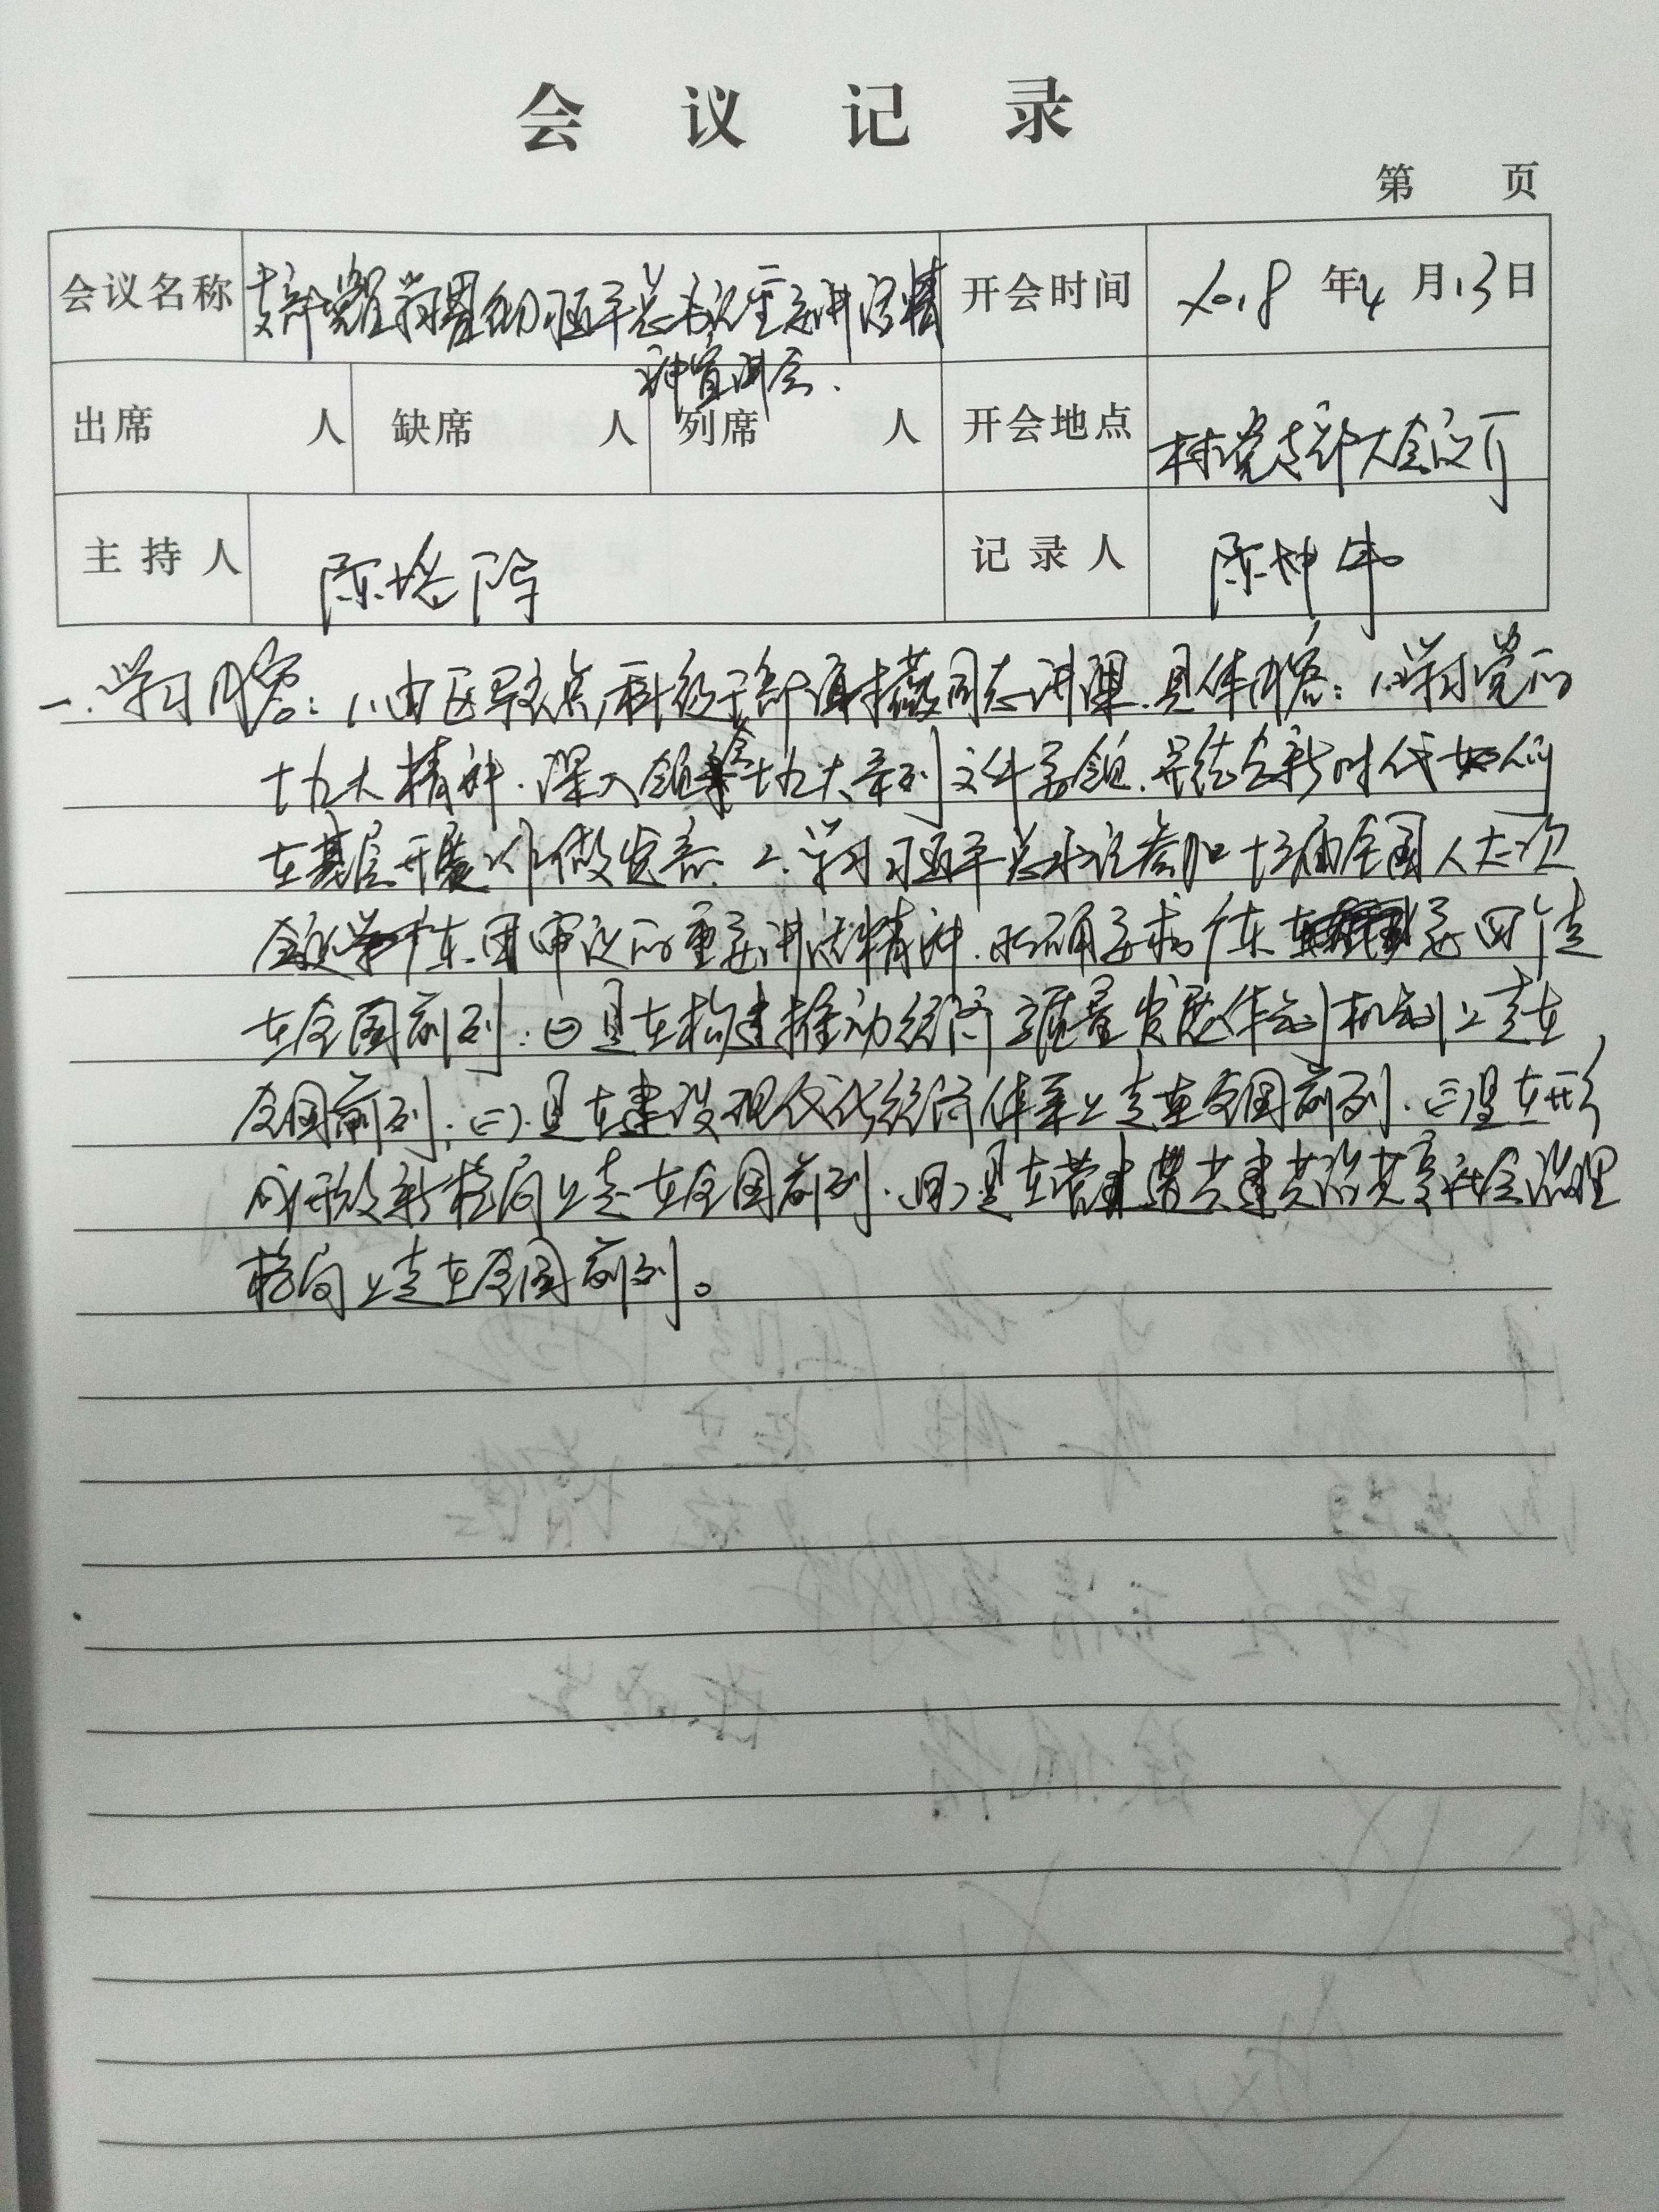 会议记录
第 页
会议名称 支部党员学习贯彻习近平总书记重要讲话精
神宣讲会.
开会时间 2018年4月13日
出席 人 缺席 人 列席 人 开会地点 村党支部大会议厅
主持人 陈 记录人 陈坤
一.学习内容:1.由区驻点科级干部 同志讲课.具体内容:1.学习党的
十九大精神.深入领会十九大系列文件要领.并结合新时代如何
在基层开展工作做发言.2.学习习近平总书记参加十三届全国人大一次
会议广东团审议的重要讲话精神.明确要求广东 四个走
在全国前列:(一)是在构建推动经济高质量发展体制机制上走在
全国前列;(二).是在建设现代化经济体系上走在全国前列.(三)是在形
成开放新格局上走在全国前列.(四)是在营造共建共治共享社会治理
格局上走在全国前列。